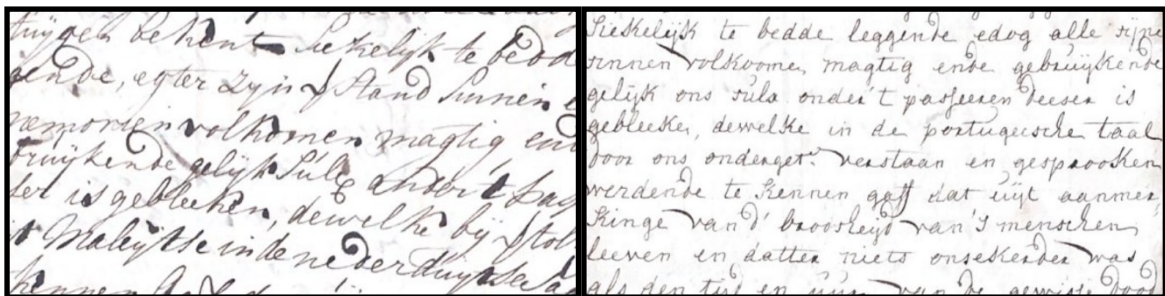 tuijgen bekent Siekelijk te bedd
gende, egter zijn Stand Sinnen
memorien volkomen magtig en
bruijkende gelijk Sulx onder't pas
ser is gebleeken, dewelke bij tol
Maleijtse in de nederduijtse
kennen
Sieskelijk te bedde leggende edog alle sijne
sinnen volkoome, magtig ende gebruijkende
gelijk ons sulx onder 't passeeren deeser is
gebleeke, dewelke in de portugeesche taal
door ons onderget: verstaan en gesprooken
werdende te kennen gaff dat uijt aanmer
kinge van d' broosheyd van 's menschen
leeven en datter niets onsekerder was
als den tijd en uure van de gewisse dood